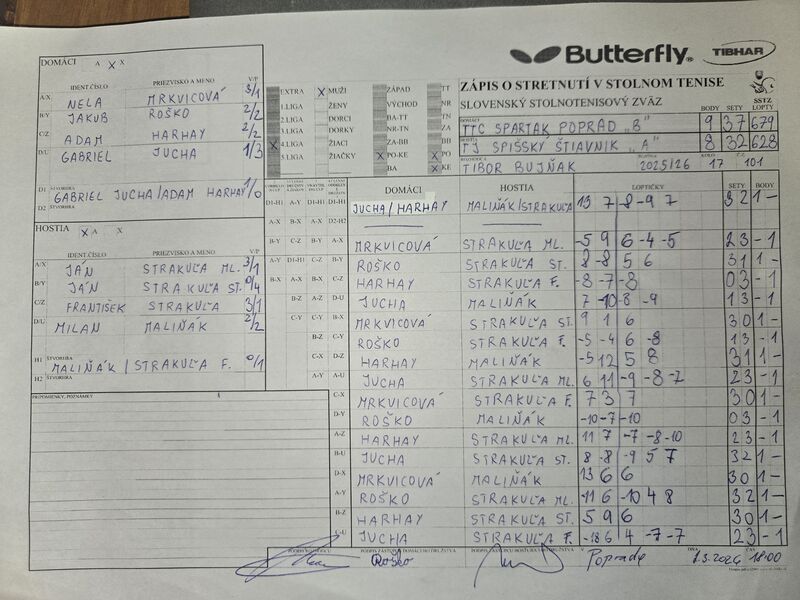 Butterfly
TIBHAR
DOMÁCI A X X
IDENT.ČÍSLO PRIEZVISKO A MENO V/P
A/X NELA MRKVICOVÁ 3/1
B/Y JAKUB ROŠKO 2/2
C/Z ADAM HARHAY 2/2
D/U GABRIEL JUCHA 1/3
D1 ŠTVORHRA GABRIEL JUCHA/ADAM HARHAY 1/0
D2 ŠTVORHRA
HOSTIA X A X
IDENT.ČÍSLO PRIEZVISKO A MENO V/P
A/X JÁN STRAKUĽA ML. 3/1
B/Y JÁN STRAKUĽA ST. 0/4
C/Z FRANTIŠEK STRAKUĽA 3/1
D/U MILAN MALIŇÁK 2/2
H1 ŠTVORHRA MALIŇÁK / STRAKUĽA F. 0/1
H2 ŠTVORHRA
PRIPOMIENKY, POZNÁMKY
EXTRA X MUŽI ZÁPAD TT
1.LIGA ŽENY VÝCHOD NR
2.LIGA DORCI BA-TT TN
3.LIGA DORKY NR-TN ZA
X 4.LIGA ŽIACI ZA-BB BB
5.LIGA ŽIAČKY X PO-KE PO
BA X KE
ZÁPIS O STRETNUTÍ V STOLNOM TENISE
SLOVENSKÝ STOLNOTENISOVÝ ZVÄZ
SSTZ
BODY SETY LOPTY
DOMÁCI TTC SPARTAK POPRAD „B" 9 37 679
HOSTIA TJ SPIŠSKÝ ŠTIAVNIK „A" 8 32 628
TIBOR BUJŇAK 2025/26 KOLO 17 101
DOMÁCI HOSTIA LOPTIČKY SETY BODY
D1-H1 A-Y D1-H1 D1-H1 JUCHA/HARHAY MALIŇÁK/STRAKUĽA 13 7 -8 -9 7 3 2 1 -
A-X B-X A-X D2-H2
B-Y C-Z B-Y A-X MRKVICOVÁ STRAKUĽA ML. -5 9 6 -4 -5 2 3 - 1
A-Y D1-H1 C-Z B-Y ROŠKO STRAKUĽA ST. 8 -8 5 6 3 1 1 -
B-X A-X D-U C-Z HARHAY STRAKUĽA F. -8 -7 -8 0 3 - 1
B-Z A-Z D-U JUCHA MALIŇÁK 7 -10 -8 -9 1 3 - 1
C-Y B-X MRKVICOVÁ STRAKUĽA ST. 9 1 6 3 0 1 -
B-Z C-Y ROŠKO STRAKUĽA F. -5 -4 6 -8 1 3 - 1
C-X D-Z HARHAY MALIŇÁK -5 12 5 8 3 1 1 -
A-Y A-U JUCHA STRAKUĽA ML. 6 11 -9 -8 -7 2 3 - 1
C-X MRKVICOVÁ STRAKUĽA F. 7 3 7 3 0 1 -
D-Y ROŠKO MALIŇÁK -10 -7 -10 0 3 - 1
A-Z HARHAY STRAKUĽA ML. 11 7 -7 -8 -10 2 3 - 1
B-U JUCHA STRAKUĽA ST. 8 -8 -9 5 7 3 2 1 -
D-X MRKVICOVÁ MALIŇÁK 13 6 6 3 0 1 -
A-Y ROŠKO STRAKUĽA ML. -11 6 -10 4 8 3 2 1 -
B-Z HARHAY STRAKUĽA ST. 5 9 6 3 0 1 -
JUCHA STRAKUĽA F. -18 6 4 -7 -7 2 3 - 1
Roško V Poprade DŇA 1.3.2026 ČAS 18:00